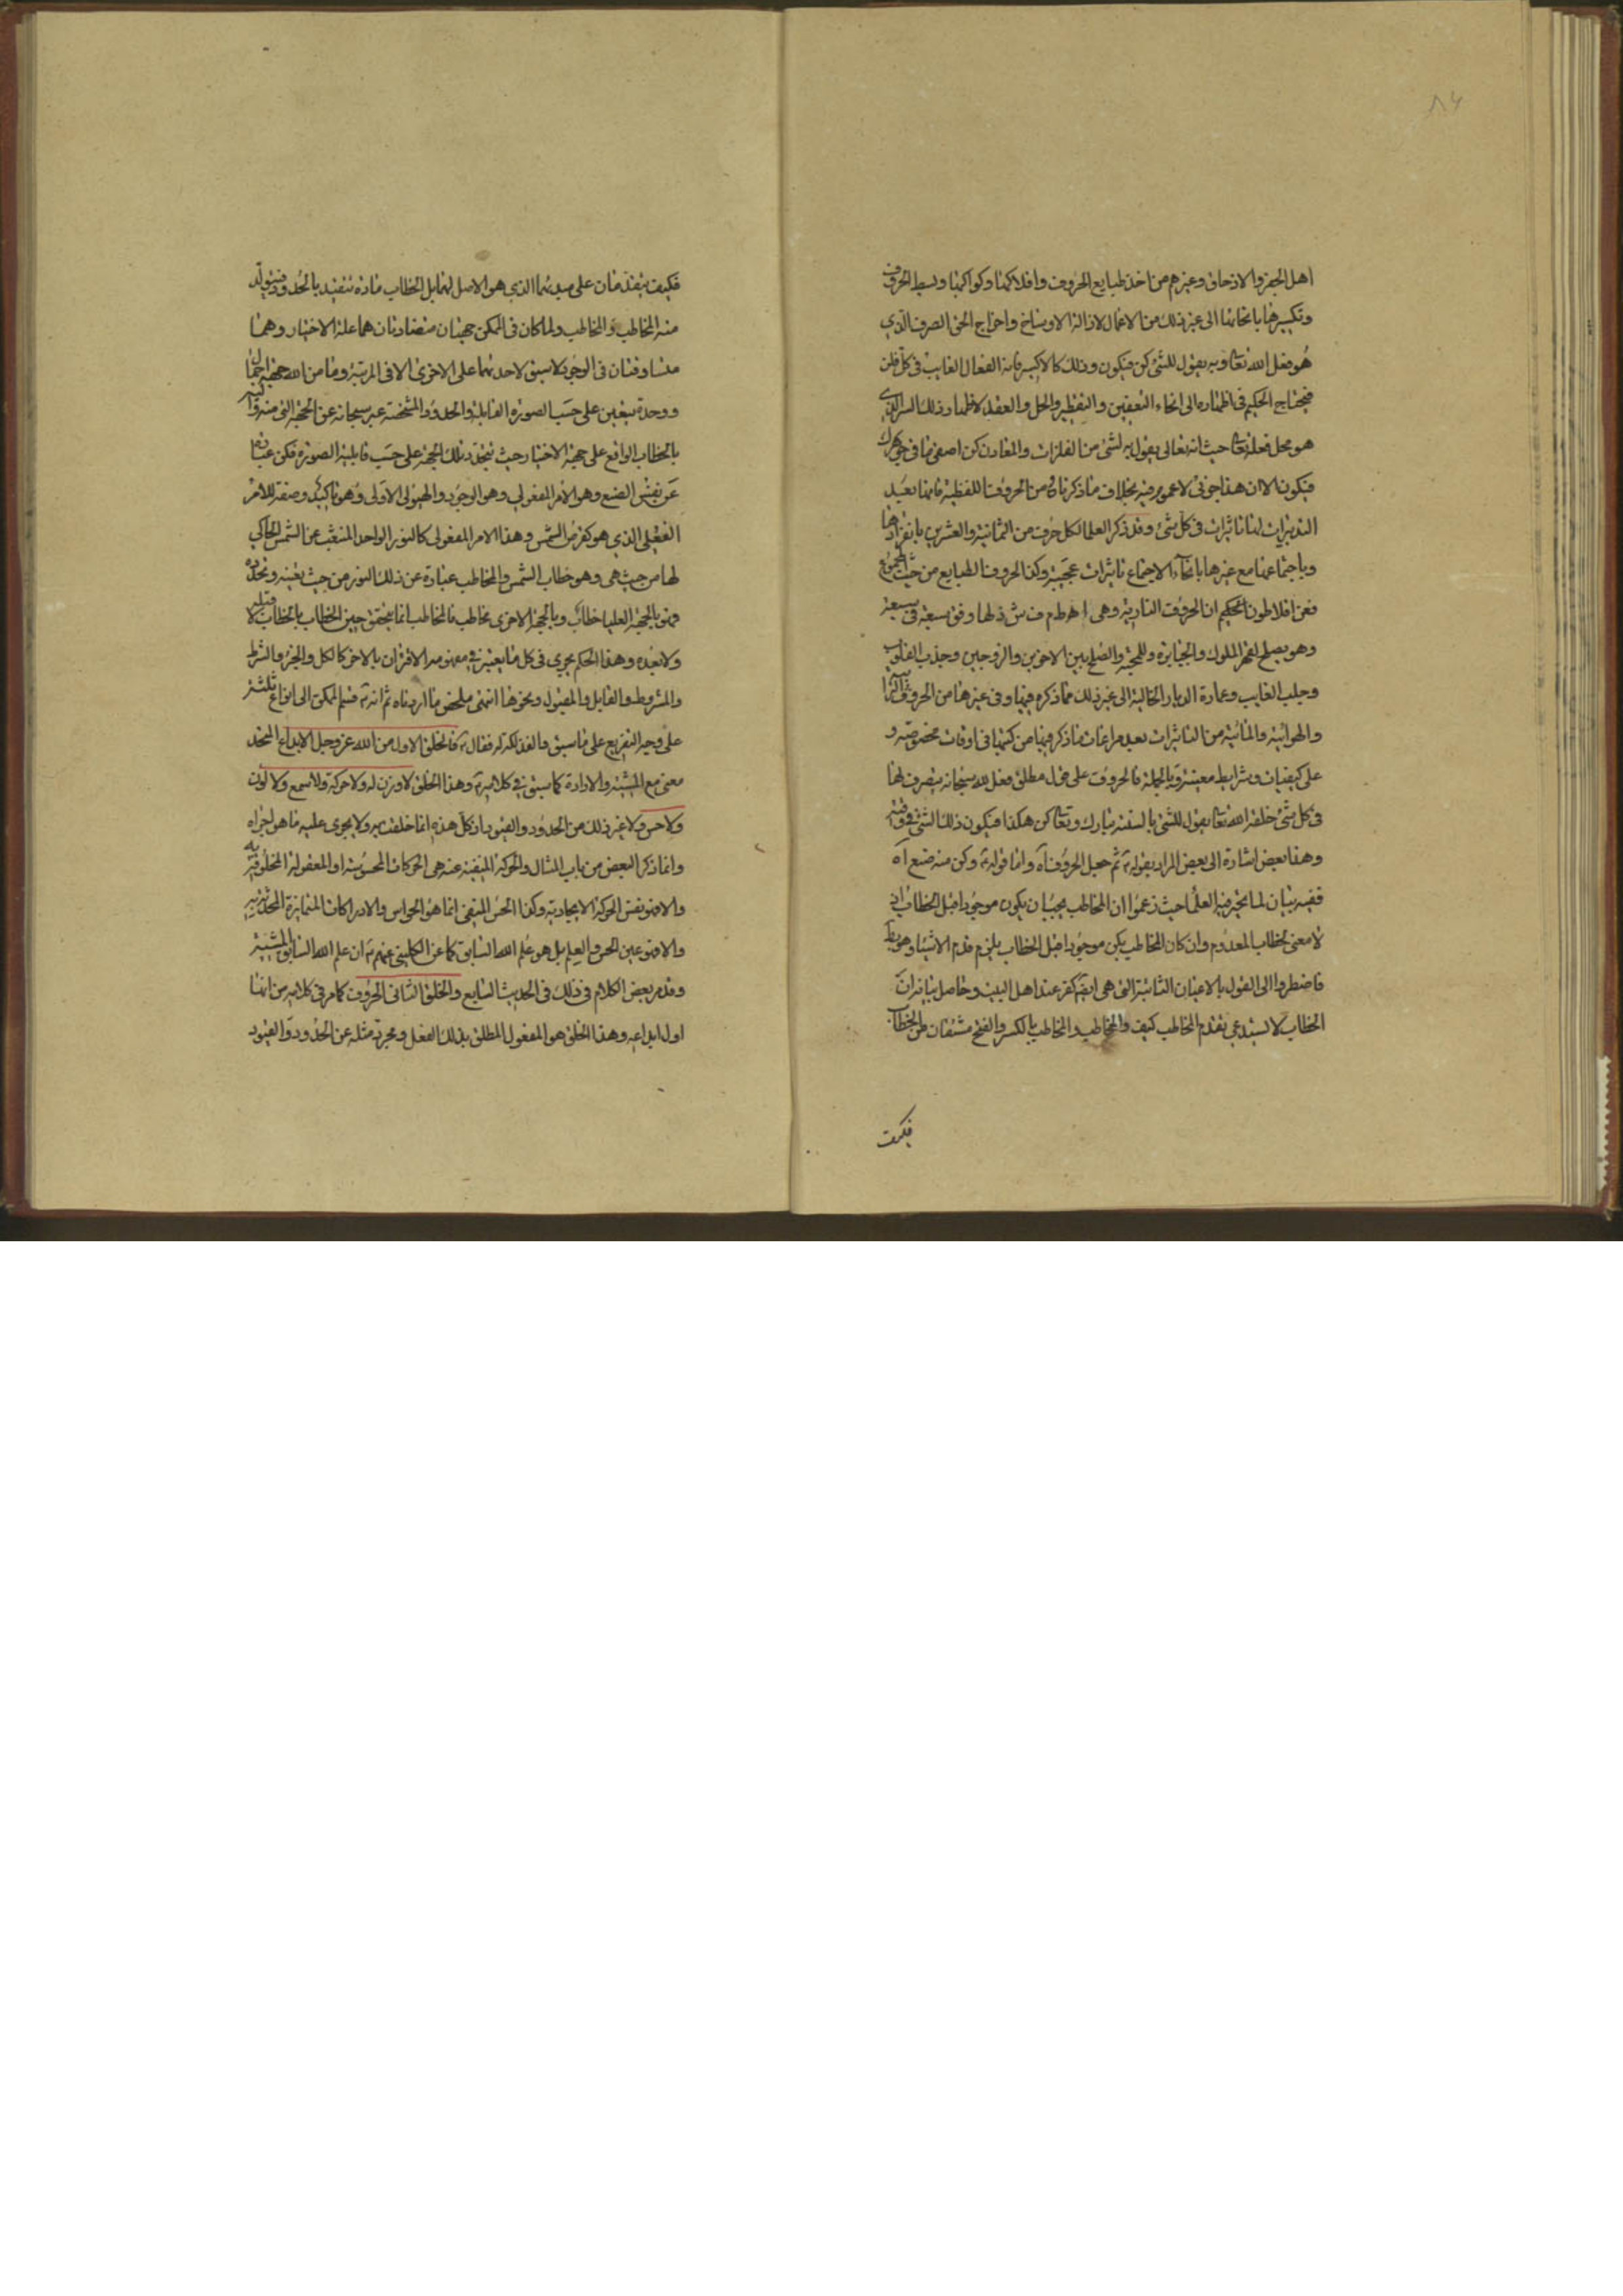 ٨٤
اهل الجفر والاوفاق وغيرهم من اخذ طبايع الحروف وافلاكها وكواكبها وبسط الحروف
وتكسيرها بانحائها الى غير ذلك من الاعمال لازالة الاوساخ واخراج الحق الصرف الذي
هو فعل الله تعا وبه يقول للشئ كن فيكون وذلك كالاكسير فانه الفعال الغايب في كل فلز
فيحتاج الحكيم في اظهاره الى انحاء التعفين والتقطير والحل والعقد لاظهار ذلك السر الذي
هو محل فعله تعا حيث انه تعالى يقول به لشئ من الفلزات والمعادن كن اصفى ما في جوهرك
فيكون الا ان هذا جزئى لا عموم فيه بخلاف ما ذكرناه من الحروف اللفظية فانها بعيد
التدبيرات لها تاثيرات في كل شئ وقد ذكر العلما لكل حرف من الثمانية والعشرين بانفرادها
وباجتماعها مع غيرها بانحاء الاجتماع تاثيرات عجيبة وكذا الحروف الطبايع من حيث المجموع
فعن افلاطون الحكيم ان الحروف النارية وهى ا ه ط م ف ش ذ لها وفق سبعة في سبعة
وهو يصلح لقهر الملوك والجبابرة وللمحبة والصلح بين الاخوين والزوجين وجذب القلوب
وجلب الغايب وعمارة الديار الخالية الى غير ذلك مما ذكره فيها وفى غيرها من الحروف الترابية
والهوائية والمائية من التاثيرات بعد مراعات ما ذكر فيها من كتبها فى اوقات مخصوصة و
على كيفيات وشرايط معينة وبالجملة فالحروف على قول مطلق فعل لله سبحانه يتصرف لها
فى كل شئ خلقه الله تعا يقول للشئ بالسنته تبارك وتعا كن هكذا فيكون ذلك الشئ فى وقته
وهذا بعض اشارة الى بعض المراد بقوله ع ثم جعل الحروف اه واما قوله ع وكن منه صنع اه
ففيه بيان لما تحير فيه العلما حيث زعموا ان المخاطب يجب ان يكون موجودا قبل الخطاب اذ
لا معنى لخطاب المعدوم وان كان المخاطب يكن موجودا قبل الخطاب يلزم قدم الاشياء وهو بط
فاضطروا الى القول بالاعيان الثابتة التى هى ايضا كفر عند اهل البيت وحاصل بيانه ان
الخطاب لا يستدعى تقدم المخاطب كيف والمخاطب والمخاطب بالكسر والفتح مشتقان من الخطاب
فكيف
فكيف يتقدمان على مبدئهما الذي هو الاصل لهما بل الخطاب مادة تتقيد بالحدود فيتولد
منه المخاطب والمخاطب ولما كان فى الممكن جهتان متضادتان هما علة الاختيار وهما
متساوقتان فى الوجود لا سبق لاحدهما على الاخرى الا فى المرتبة وما من الله جهة اجمال
ووحدة يتعين على حسب الصورة القابلة والحدود المشخصة عبر سبحانه عن الجهة التى منه واليه
بالخطاب الواقع على جهة الاختيار حيث يتحدد تلك الجهة على حسب قابلية الصورة فكن عبارة
عن نفس الصنع وهو الامر المفعولي وهو الوجود والهيولى الاولى وهو تاكيد وصفة للامر
الفعلى الذي هو كقرص الشمس وهذا الامر المفعولى كالنور الواحد المنشعب عن الشمس الحاكي
لها من حيث هى وهو خطاب الشمس والمخاطب عبارة عن ذلك النور من حيث تعينه وتحدده
فهو بالجهة العليا خطاب وبالجهة الاخرى مخاطب فالمخاطب انما يتحقق حين الخطاب بالخطاب لا قبله
ولا بعده وهذا الحكم يجري فى كل ما يعتبر فى مفهومه الاقتران بالاخر كالكل والجزء والشرط
والمشروط والقابل والمقبول ونحوها انتهى ملخص ما اردناه ثم انه ع قسم الممكن الى انواع ثلثة
على وجه التفريع على ما سبق والفذلكة له فقال ع فالخلق الاول من الله عز وجل الابداع المتحد
معنى مع المشية والارادة كما سبق فى كلامه ع وهذا الخلق لا وزن له ولا حركة ولا سمع ولا لون
ولا حس ولا غير ذلك من الحدود والقيود اذ كل هذه انما خلقت به ولا يجرى عليه ما هو اجراه
وانما ذكر البعض من باب المثال والحركة المنفية عنه هى الحركات المحسوسة او المعقولة المخلوقة به
والا فهو نفس الحركة الايجادية وكذا الحس المنفى انما هو الحواس والادراكات المتمايزة المحدثة به
والا فهو عين الحس والعلم بل هو علم الله السابق كما عن الكلينى عنهم ع ان علم الله السابق المشية
وقد مر بعض الكلام فى ذلك فى الحديث السابع والخلق الثانى الحروف كما مر فى كلامه من انها
اول ابداعه وهذا الخلق هو المفعول المطلق بذلك الفعل ومجرد مثله عن الحدود والقيود